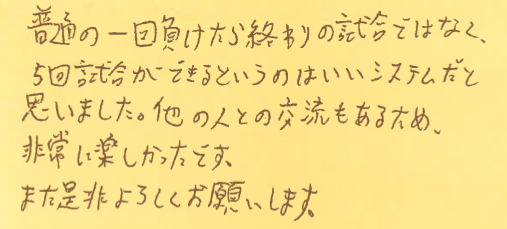 普通の一回負けたら終わりの試合ではなく、
5回試合ができるというのはいいシステムだと
思いました。他の人との交流もあるため、
非常に楽しかったです。
また是非よろしくお願いします。